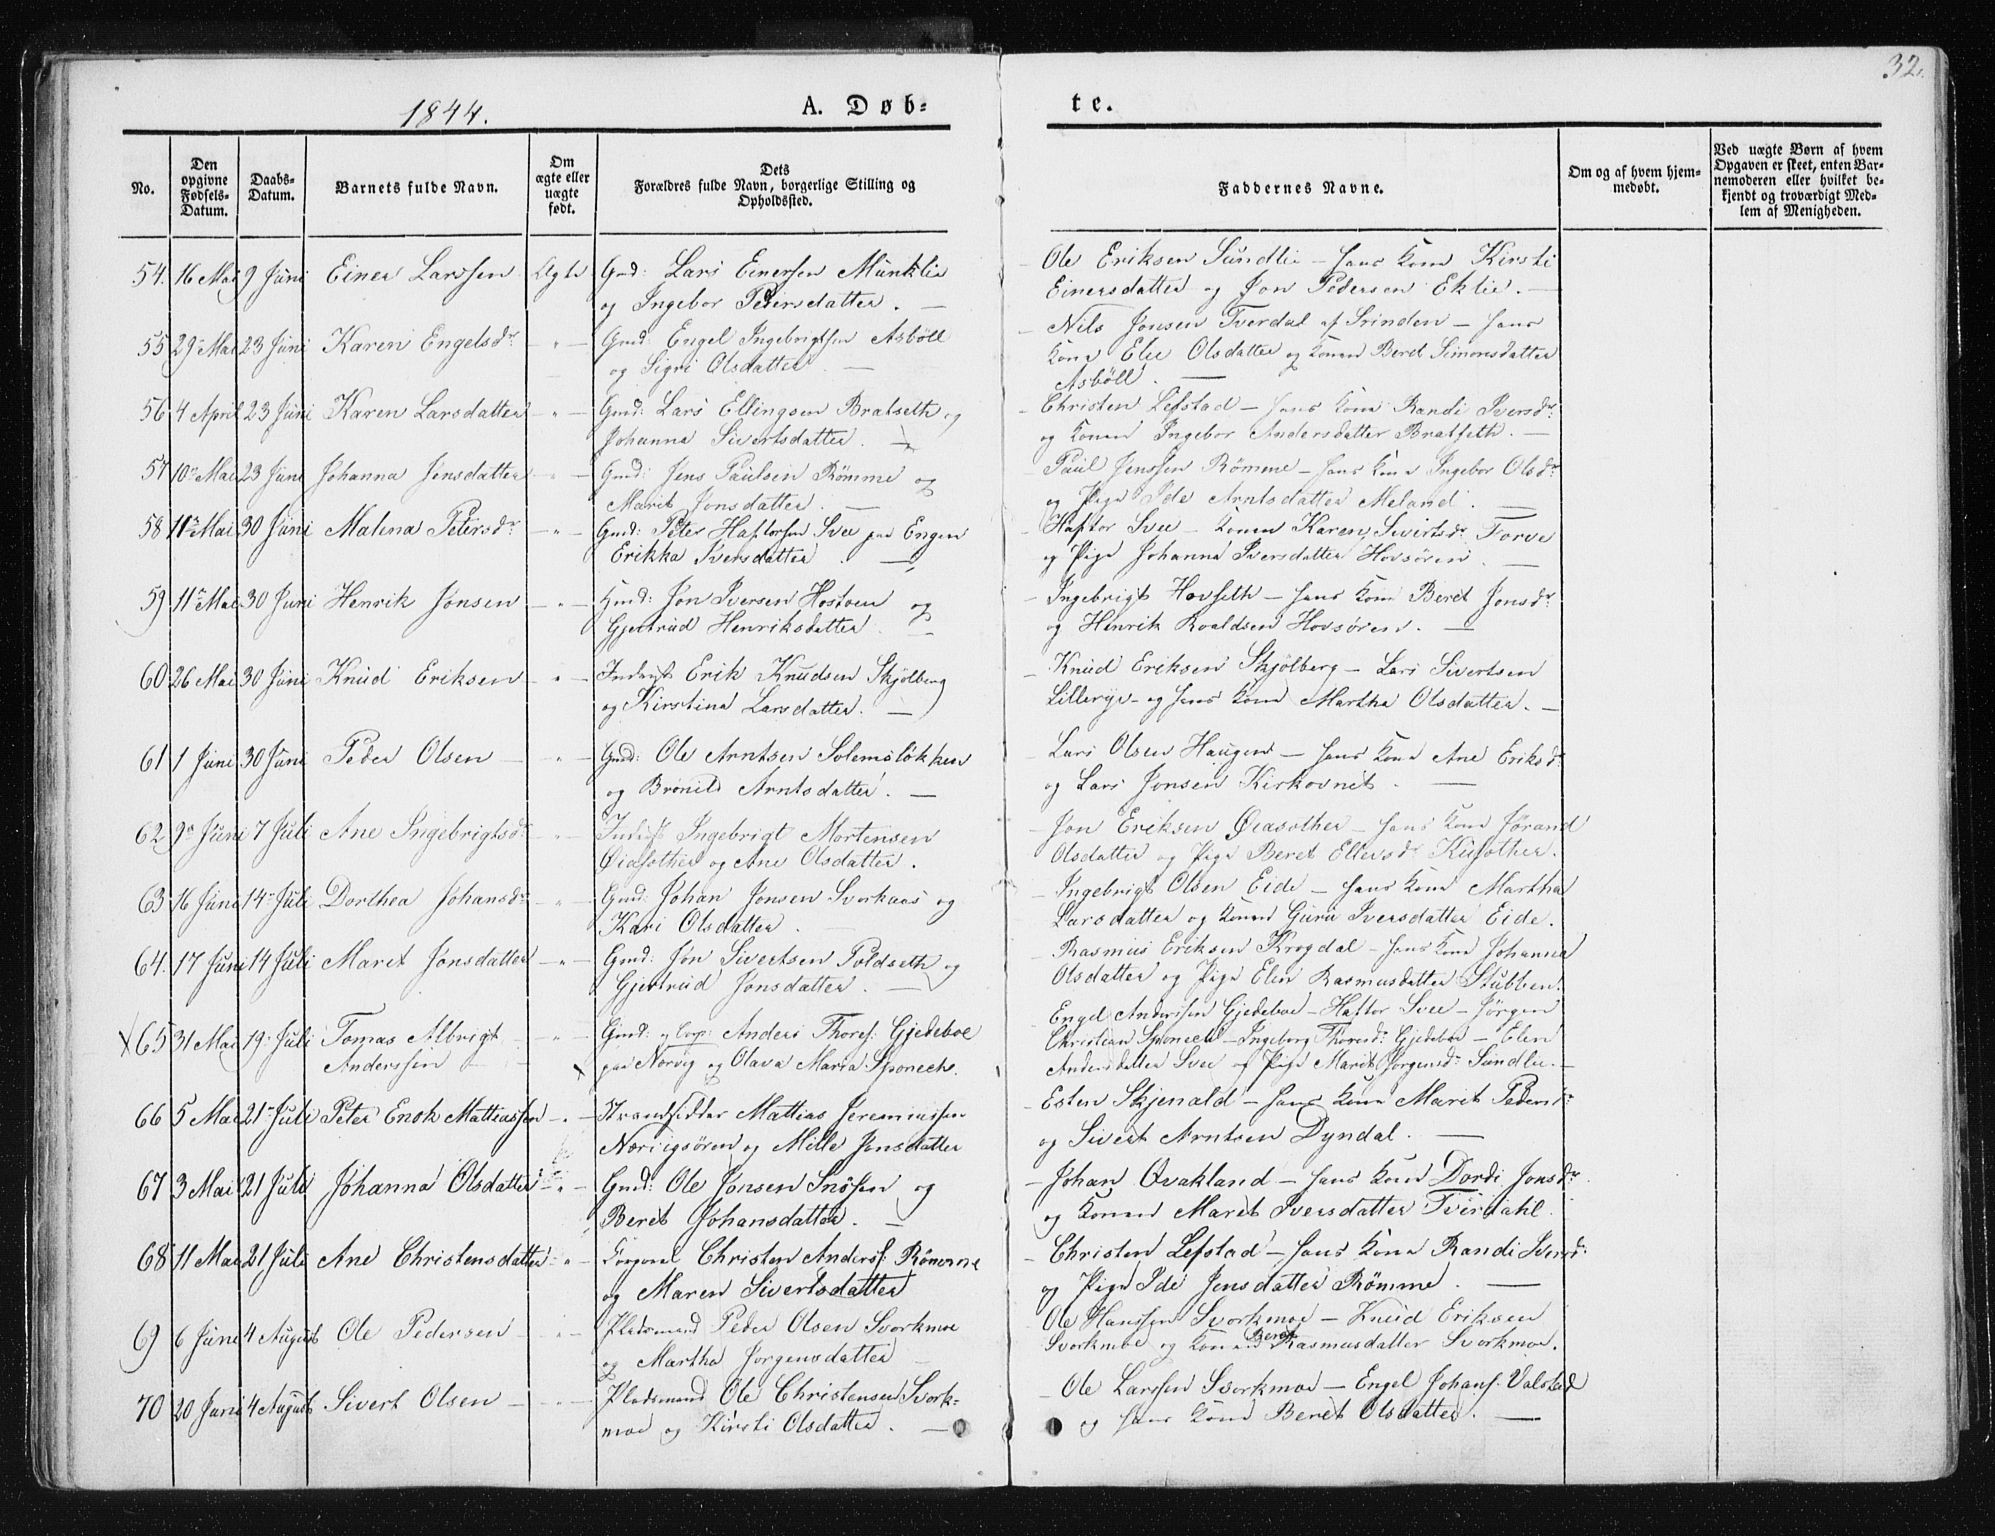 32.
1844.
A. Døb=
te.
No.
Den opgivne Fødsels-Datum.
Daabs-Datum.
Barnets fulde Navn.
Om ægte eller uægte født.
Dets Forældres fulde Navn, borgerlige Stilling og Opholdssted.
Faddernes Navne.
Om og af hvem hjemmedøbt.
Ved uægte Børn af hvem Opgaven er skeet, enten Barnemoderen eller hvilket bekjendt og troværdigt Medlem af Menigheden.
54. 16 Mai 9 Juni Einer Larssen Ægte Gmd: Lars Einersen Munklie
og Ingebor Pedersdatter. —
Ole Eriksen Sundlie — hans Kone Kirsti
Einersdatter og Jon Pedersen Eklie. —
55 29 Mai 23 Juni Karen Engelsdr —"— Gmd: Engel Ingebrigtsen Asböll
og Sigri Olsdatter. —
Nils Jonsen Tverdal af Srinden — hans
Kone Elie Olsdatter og Konen Beret Simonsdatter
Asböll. —
56 4 April 23 Juni Karen Larsdatter —"— Gmd: Lars Ellingsen Bratseth og
Johanna Sivertsdatter. —
Christen Lefstad — hans Kone Randi Iversdr
og Konen Ingebor Andersdatter Bratseth. —
57 10 Mai 23 Juni Johanna Jensdatter —"— Gmd: Jens Paulsen Römme og
Marit Jonsdatter. —
Paul Jenssen Römme — hans Kone Ingebor Olsdr
og Pige Ide Arntsdatter Meland. —
58 11 Mai 30 Juni Malina Petersdr —"— Gmd: Peter Haftorsen Svee paa Engen
Erikka Iversdatter. —
Haftor Svee — Konen Karen Sivertsdr Torve
og Pige Johanna Iversdatter Hovsören. —
59 11 Mai 30 Juni Henrik Jonsen —"— Hmd: Jon Iversen Hostoen og
Gjertrud Henriksdatter. —
Ingebrigt Hovseth — hans Kone Beret Jonsdr
og Henrik Roaldsen Hovsören. —
60 26 Mai 30 Juni Knud Eriksen —"— Inderst Erik Knudsen Skjölberg
og Kirstina Larsdatter. —
Knud Eriksen Skjölberg — Lars Sivertsen
Lillerye — og hans Kone Martha Olsdatter. —
61 1 Juni 30 Juni Peder Olsen —"— Gmd: Ole Arntsen Solemslökken
og Brönild Arntsdatter. —
Lars Olsen Haugen — hans Kone Ane Eriksdr
og Lars Jonsen Kirkovnet. —
62 9 Juni 7 Juli Ane Ingebrigtsdr —"— Inderst Ingebrigt Mortensen
Øiasother og Ane Olsdatter.
Jon Eriksen Øiasother — hans Kone Jörand
Olsdatter og Pige Beret Ellersdr Kusother.
63 16 Juni 14 Juli Dorthea Johansdr —"— Gmd: Johan Jonsen Svorkaas og
Kari Olsdatter. —
Ingebrigt Olsen Eide — hans Kone Martha
Larsdatter og Konen Guru Iversdatter Eide.
64. 17 Juni 14 Juli Maret Jonsdatter —"— Gmd: Jon Sivertsen Poldseth og
Gjertrud Jonsdatter. —
Rasmus Eriksen Krogdal — hans Kone Johanna
Olsdatter og Pige Elen Rasmusdatter Stubben.
65 31 Mai 19 Juli Tomas Albrigt
Anderssen —"— Gmd: og Corp: Anders Thores: Gjedeboe
paa Norvig og Olava Maria Sponech.
Engel Andersen Gjedeboe — Haftor Svee — Jörgen
Christian Sponech — Ingeborg Thoresdr Gjedeboe — Elen
Andersdatter Svee og Pige Marit Jörgensdr Sundlie. —
66 5 Mai 21 Juli Peter Enok Mattiassen —"— Strandsidder Mattias Jeremiassen
Norvigsören og Mille Jonsdatter
Esten Skjenald — hans Kone Marit Pedersdr
og Sivert Arntsen Dyndal. —
67 3 Mai 21 Juli Johanna Olsdatter —"— Gmd: Ole Jonsen Snösen og
Beret Johansdatter. —
Johan Qvakland — hans Kone Dordi Jonsdr
og Konen Maret Iversdatter Tverdahl.
68 11 Mai 21 Juli Ane Christensdatter —"— Korporal Christen Anders: Römme
og Maren Sivertsdatter
Christen Lefstad — hans Kone Randi Iversdr
og Pige Ide Jensdatter Römme. —
69 6 Juni 4 August Ole Pedersen —"— Pladsmand Peder Olsen Svorkmoe
og Martha Jörgensdatter —
Ole Hanssen Svorkmoe — Knud Eriksen
Svorkmoe og Konen Beret Rasmusdatter Svorkmoe.
70 20 Juni 4 August Sivert Olsen —"— Pladsmand Ole Christensen Svork=
moe og Kirsti Olsdatter. —
Ole Larssen Svorkmoe — Engel Johans: Valstad
og hans Kone Beret Olsdatter. —